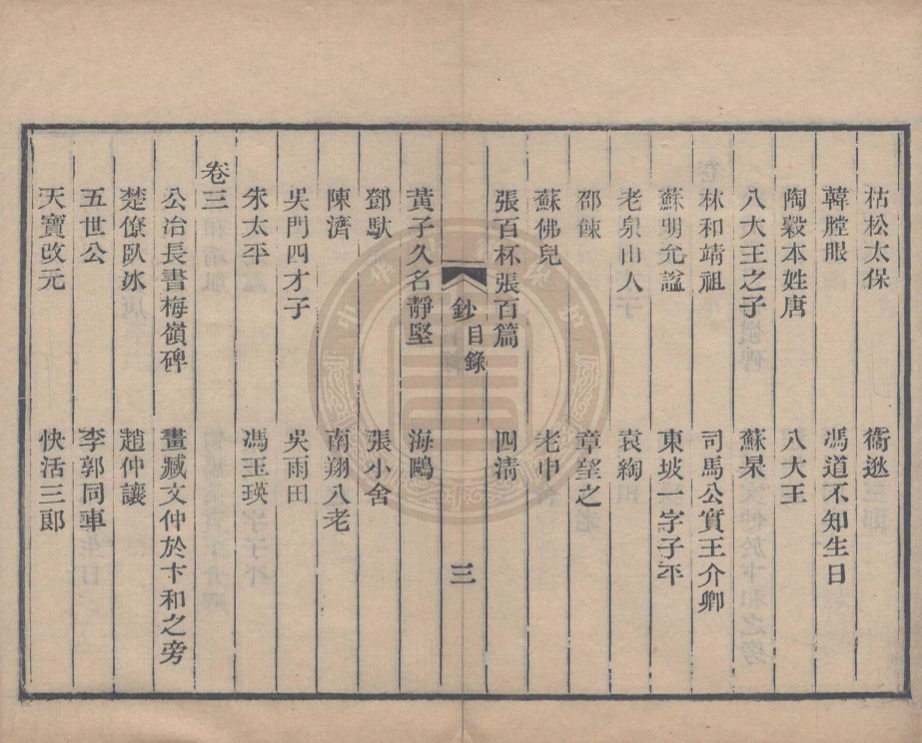 枯松太保　衞逖
韓膛眼　馮道不知生日
陶穀本姓唐　八大王
八大王之子　蘇杲
林和靖祖　司馬公實王介卿
蘇明允謚　東坡一字子平
老泉山人　袁綯
邵餗　章望之
蘇佛兒　老申
張百杯張百篇　四清
鈔目錄　三
黃子久名靜堅　海鷗
鄧馱　張小舍
陳濟　南翔八老
吳門四才子　吳雨田
朱太平　馮玉瑛
卷三
公冶長書梅嶺碑　畫臧文仲於卞和之旁
楚僚臥冰　趙仲讓
五世公　李郭同車
天寶改元　快活三郞